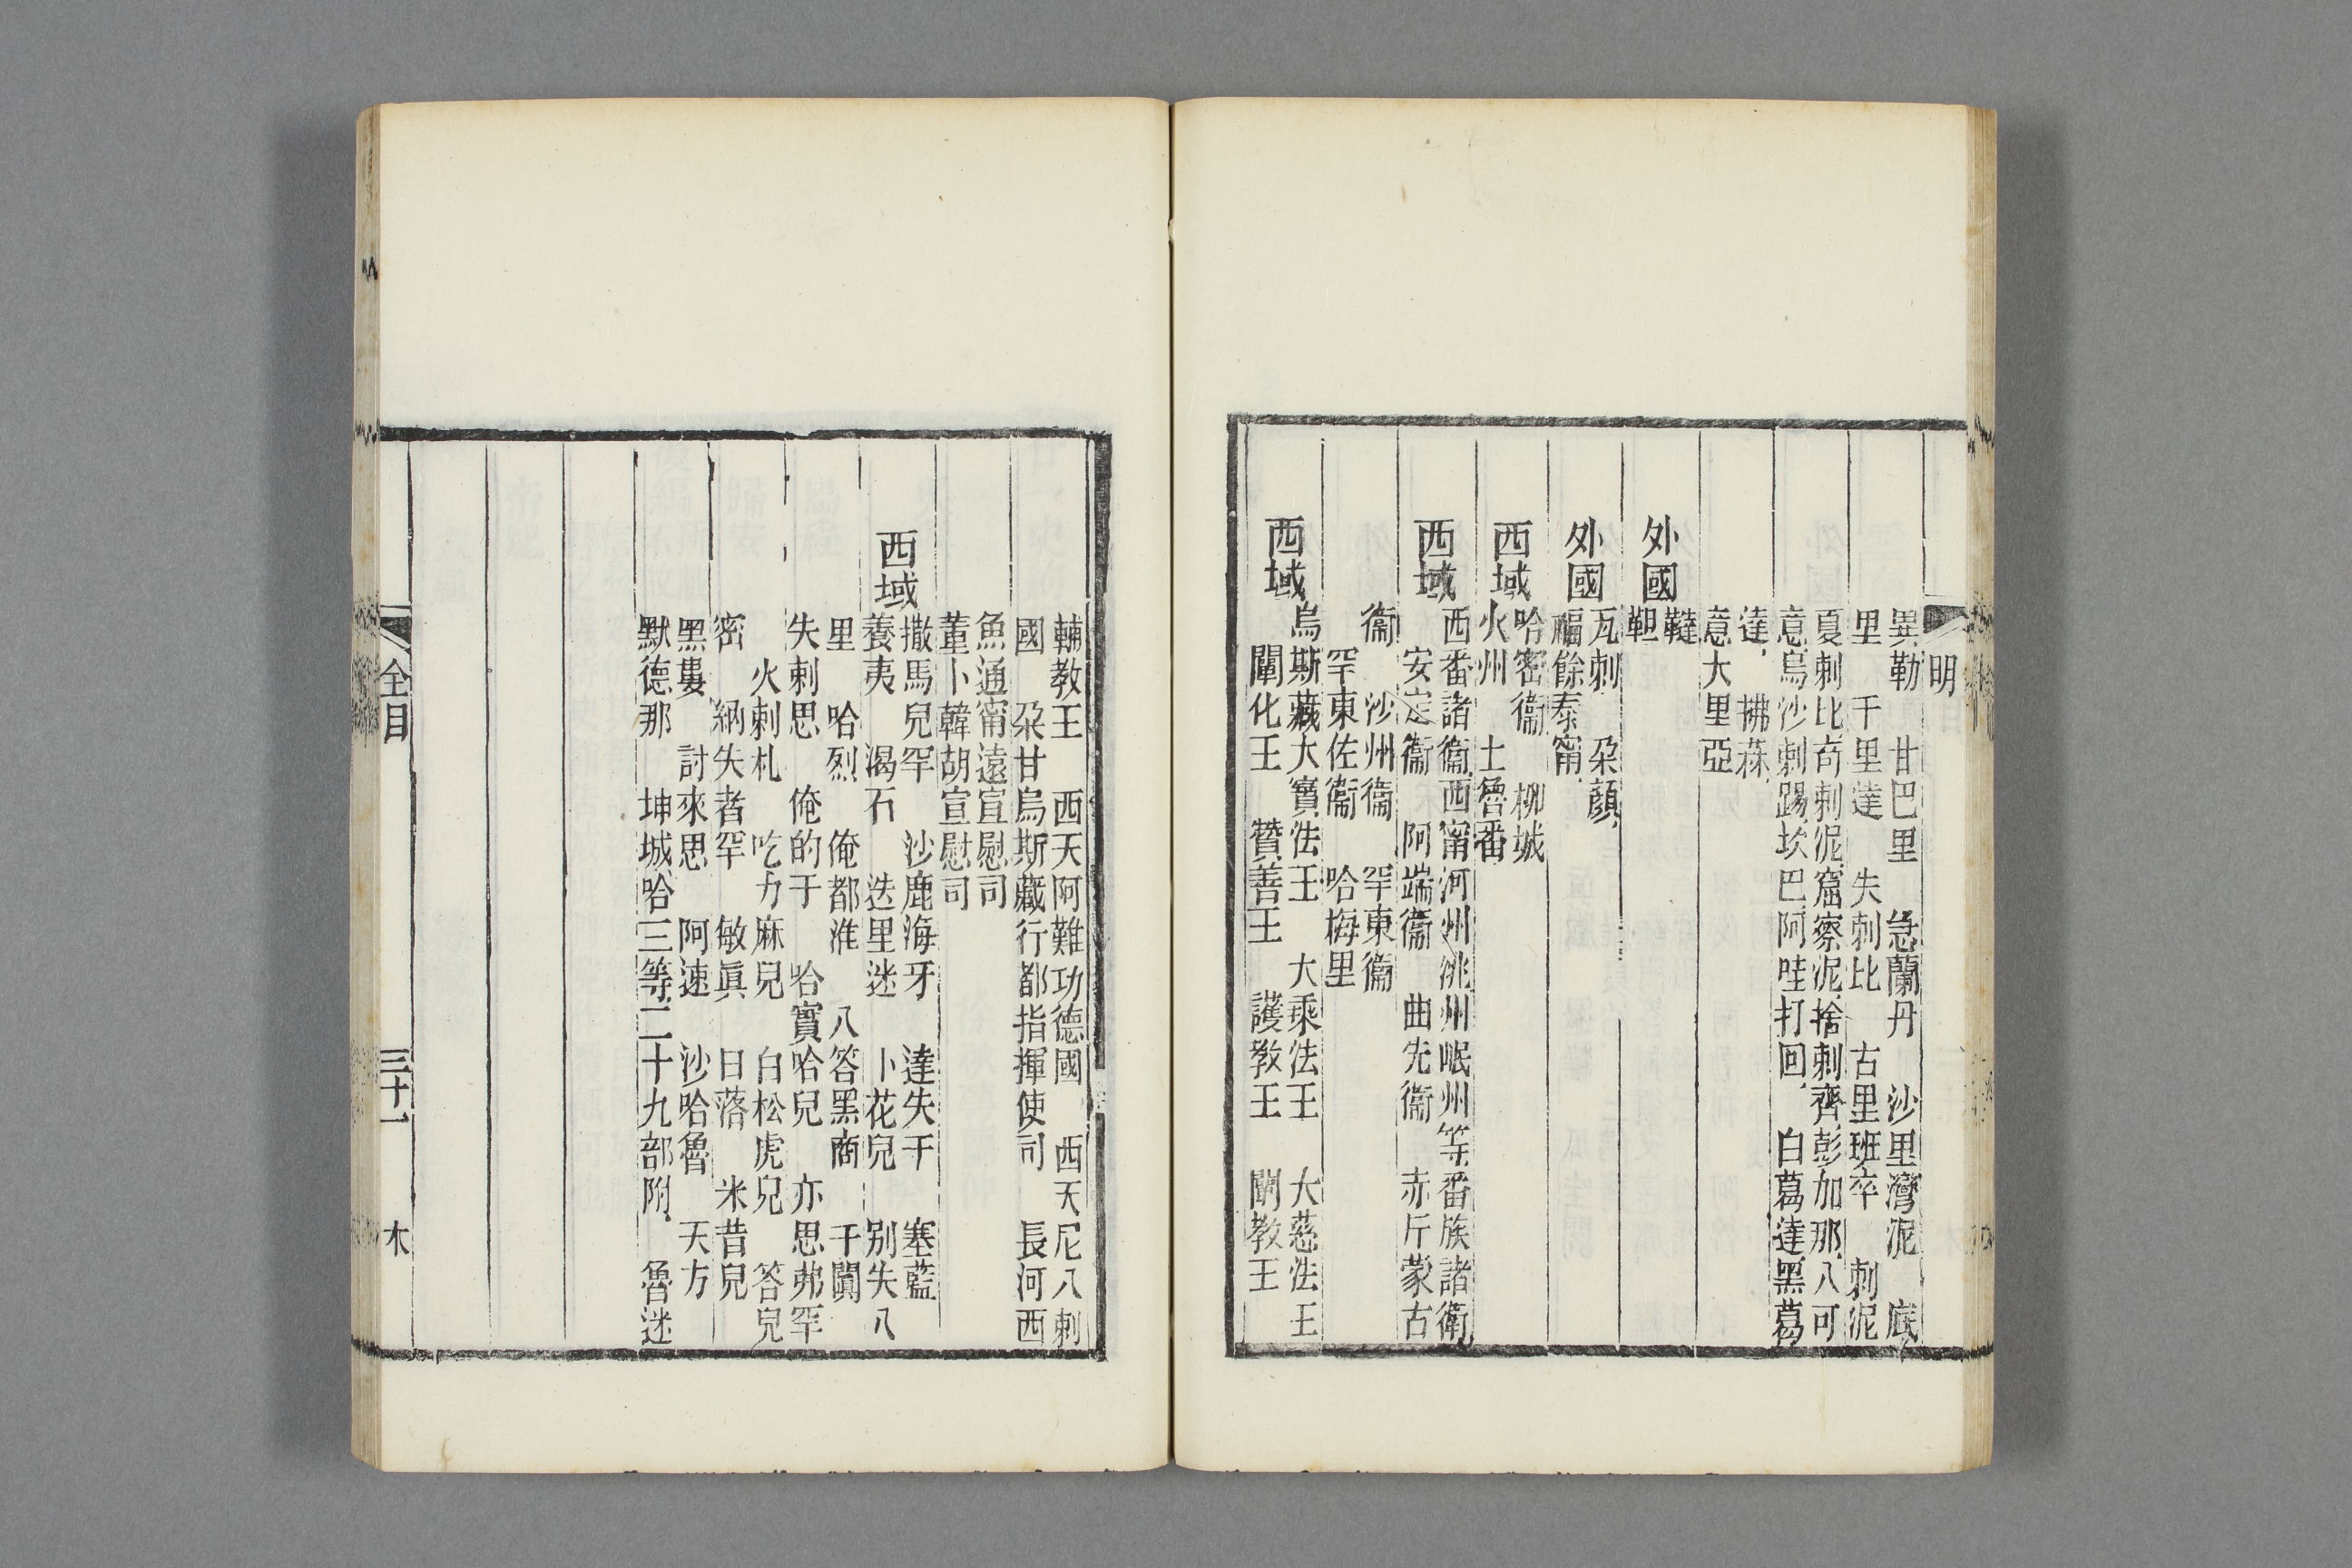 明
異勒　甘巴里　急蘭丹　沙里灣泥　底
里　千里達　失剌比　古里班卒　剌泥
夏剌比奇剌泥窟察泥捨剌齊彭加那八可
意烏沙剌踢坎巴阿哇打回　白葛達黑葛
達　拂菻
意大里亞
外國　韃
靼
外國　瓦剌　朵顏
福餘泰甯
西域　哈密衞　柳城
火州　土魯番
西域　西番諸衞西甯河州洮州岷州等番族諸衛
安定衞　阿端衞　曲先衞　赤斤蒙古
衞　沙州衞　罕東衞
罕東佐衞　哈梅里
西域　烏斯藏大寶法王　大乘法王　大慈法王
闡化王　贊善王　護教王　闡教王
輔教王　西天阿難功德國　西天尼八剌
國　朵甘烏斯藏行都指揮使司　長河西
魚通甯遠宣慰司
董卜韓胡宣慰司
西域　撒馬兒罕　沙鹿海牙　達失干　塞藍
養夷　渴石　迭里迷　卜花兒　別失八
里　哈烈　俺都淮　八答黑商　于闐
失剌思　俺的干　哈實哈兒　亦思弗罕
火剌札　吃力麻兒　白松虎兒　答兒
密　納失者罕　敏眞　日落　米昔兒
黑婁　討來思　阿速　沙哈魯　天方
默德那　坤城哈三等二十九部附　魯迷
全目
三十一
木